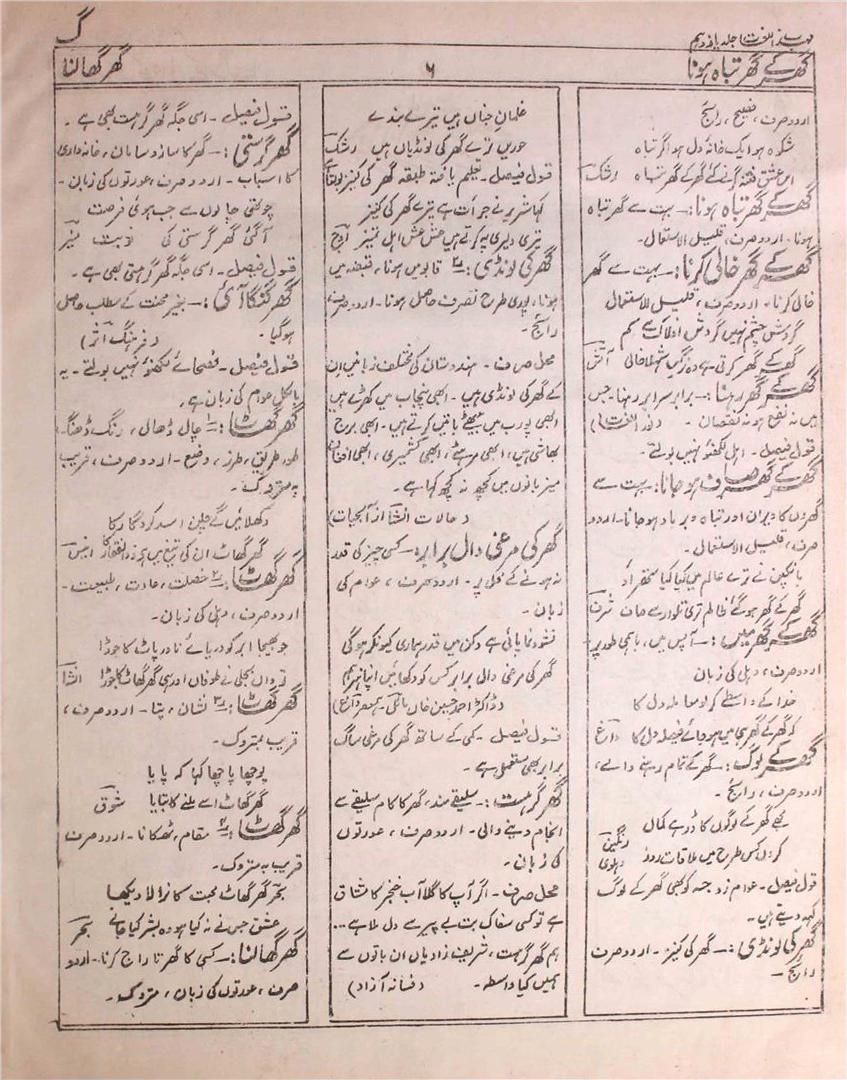 مہذب اللغت، جلد یازدہم
گ
گھر کے گھر تباہ ہونا
۶
گھر گھالنا
اردو صرف، فصیح، رائج
شکوہ ہو ایک خانۂ دل ہو اگر تباہ
اس عشق فتنہ گر نے گھر کے گھر تباہ رشک
گھر کے گھر تباہ ہونا:۔ بہت سے گھر تباہ
ہونا۔ اردو صرف، قلیل الاستعمال۔
گھر کے گھر خالی کرنا:۔ بہت سے گھر
خالی کرنا۔ اردو صرف، قلیل الاستعمال
گردش چشم نہیں گردش افلاک سے کم
گھر کے گھر کرتی ہے وہ نرگس شہلا خالی آتش
گھر کے گھر رہنا:۔ برابر سرابر رہنا۔ جس
میں نہ نفع ہو نہ نقصان۔ (نور اللغت)
قول فیصل۔ اہل لکھنؤ نہیں بولتے۔
گھر کے گھر صاف ہو جانا:۔ بہت سے
گھروں کا ویران اور تباہ و برباد ہو جانا۔ اردو
صرف، قلیل الاستعمال۔
بانکپن نے ترے عالم میں کیا کیا ستھراؤ
گھر کے گھر ہو گئے ظالم تری تلوار سے صاف شرف
گھر کے گھر میں:۔ آپس میں، باہمی طور پر۔
اردو صرف، دہلی کی زبان
خدا کے واسطے کر لو معاملہ دل کا
کہ گھر کے گھر ہی میں ہو جائے فیصلہ دل کا داغ
گھر کے لوگ:۔ گھر کے تمام رہنے والے،
اردو صرف، رائج۔
مجھے گھر کے لوگوں کا ڈر ہے کمال
کروں کس طرح میں ملاقات روز رنگین دہلوی
قول فیصل۔ عوام زوجہ کو بھی گھر کے لوگ
کہہ دیتے ہیں۔
گھر کی لونڈی:۔ گھر کی کنیز۔ اردو صرف
رائج۔
غلمان جناں ہیں تیرے بندے
حوریں ترے گھر کی لونڈیاں ہیں رشک
قول فیصل۔ تعلیم یافتہ طبقہ گھر کی کنیز بولتا ہے
کہا شریر نے جرأت ہے تیرے گھر کی کنیز
تری دلیری پہ کرتے ہیں عش عش اہل تمیز اوج
گھر کی لونڈی:۔ قابو میں ہونا، قبضہ میں
ہونا، پوری طرح تصرف حاصل ہونا۔ اردو صرف
رائج۔
محل صرف۔ ہندوستان کی مختلف زبانیں ان
کے گھر کی لونڈی ہیں۔ ابھی پنجاب میں کھڑے ہیں
ابھی پورب میں بیٹھے باتیں کرتے ہیں۔ ابھی برج
بھاشی ہیں، ابھی مرہٹے، ابھی کشمیری، ابھی افغان
میں زبانوں میں کچھ نہ کچھ کہا ہے۔
(حالات انشا از آب حیات)
گھر کی مرغی دال برابر:۔ کسی چیز کی قدر
نہ ہونے کے محل پر۔ اردو صرف، عوام کی
زبان۔
نشو و نما پائی ہے دکن میں قدر ہماری کیونکر ہوگی
گھر کی مرغی دال برابر کس کو دکھائیں اپنا ہنر ہم
(ڈاکٹر احمد حسین خاں مائل۔ ہمعصر داغ)
قول فیصل۔ کمی کے ساتھ گھر کی مرغی ساگ
برابر بھی مستعمل ہے۔
گھر گرہست:۔ سلیقے مند، گھر کا کام سلیقے سے
انجام دینے والی۔ اردو صرف، عورتوں
کی زبان۔
محل صرف۔ اگر آپ کا گلا آب خنجر کا مشتاق
ہے تو کسی سفاک بت بے پیر سے دل ملائے ...
ہم گھر گرہست، شریف زادیاں ان باتوں سے
ہمیں کیا واسطہ۔ (فسانہ آزاد)
قول فیصل۔ اسی جگہ گھر گرہست بھی ہے۔
گھر گرستی:۔ گھر کا ساز و سامان، خانہ داری
کا اسباب۔ اردو صرف، عورتوں کی زبان۔
چوتھی چالوں سے جب ہوئی فرصت
آ گئی گھر گرستی کی نوبت منیر
قول فیصل۔ اسی جگہ گھر گرہستی بھی ہے۔
گھر گنگا آئی:۔ بغیر محنت کے مطلب حاصل
ہو گیا۔ (فرہنگ اثر)
قول فیصل۔ فصحائے لکھنؤ نہیں بولتے۔ یہ
بالکل عوام کی زبان ہے۔
گھر گھاٹ:۔ ۱؎ چال ڈھال، رنگ ڈھنگ،
طور طریق، طرز، وضع۔ اردو صرف، قریب
بہ متروک۔
دکھلائیں گے چلن اسد کردگار کا
گھر گھاٹ ان کی تیغ میں ہے ذوالفقار کا انیس
گھر گھاٹ:۔ ۲؎ خصلت، عادت، طبیعت۔
اردو صرف، دہلی کی زبان۔
جو بھیجا ابر کو دریا نے نادر پاٹ کا جوڑا
تو واں بجلی نے طوفاں اور ہی گھر گھاٹ کا جوڑا انشا
گھر گھاٹ:۔ ۳؎ نشان، پتا۔ اردو صرف،
قریب بمتروک۔
پوچھا پاچھا کہا کہ پایا
گھر گھاٹ اسے ملنے کا بتایا شوق
گھر گھاٹ:۔ ۴؎ مقام، ٹھکانا۔ اردو صرف
قریب بہ متروک۔
بحر گھر گھاٹ محبت کا نرالا دیکھا
عشق جس نے نہ کیا ہو وہ بشر کیا جانے بحر
گھر گھالنا:۔ کسی کا گھر تاراج کرنا۔ اردو
صرف، عورتوں کی زبان، متروک۔